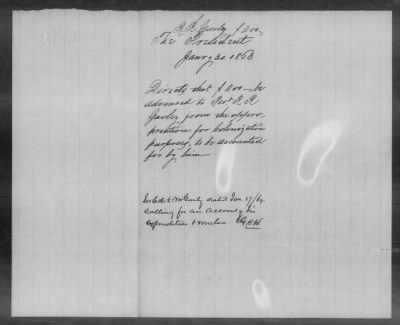 R. R. Gurley $200
The President
Jany 30 1863
Directs that $200 be
advanced to Rev. R. R.
Gurley from the appro-
priation for Colonization
purposes, to be accounted
for by him
See letter to Mr Gurley dated Jan 17/64
Calling for an account of his
expenditures & vouchers